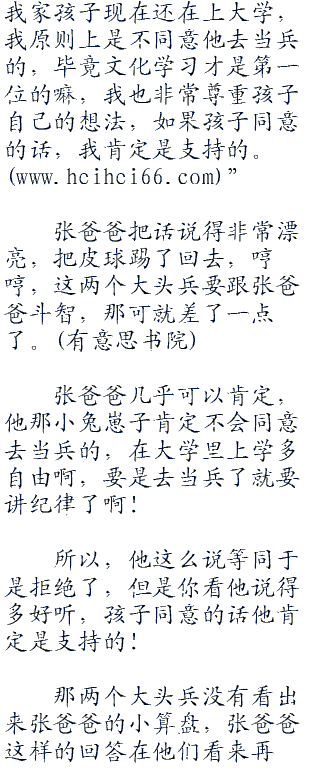 我家孩子现在还在上大学，
我原则上是不同意他去当兵
的，毕竟文化学习才是第一
位的嘛，我也非常尊重孩子
自己的想法，如果孩子同意
的话，我肯定是支持的。
(www.hcihci66.com)”
张爸爸把话说得非常漂
亮，把皮球踢了回去，哼
哼，这两个大头兵要跟张爸
爸斗智，那可就差了一点
了。(有意思书院)
张爸爸几乎可以肯定，
他那小兔崽子肯定不会同意
去当兵的，在大学里上学多
自由啊，要是去当兵了就要
讲纪律了啊!
所以，他这么说等同于
是拒绝了，但是你看他说得
多好听，孩子同意的话他肯
定是支持的!
那两个大头兵没有看出
来张爸爸的小算盘，张爸爸
这样的回答在他们看来再